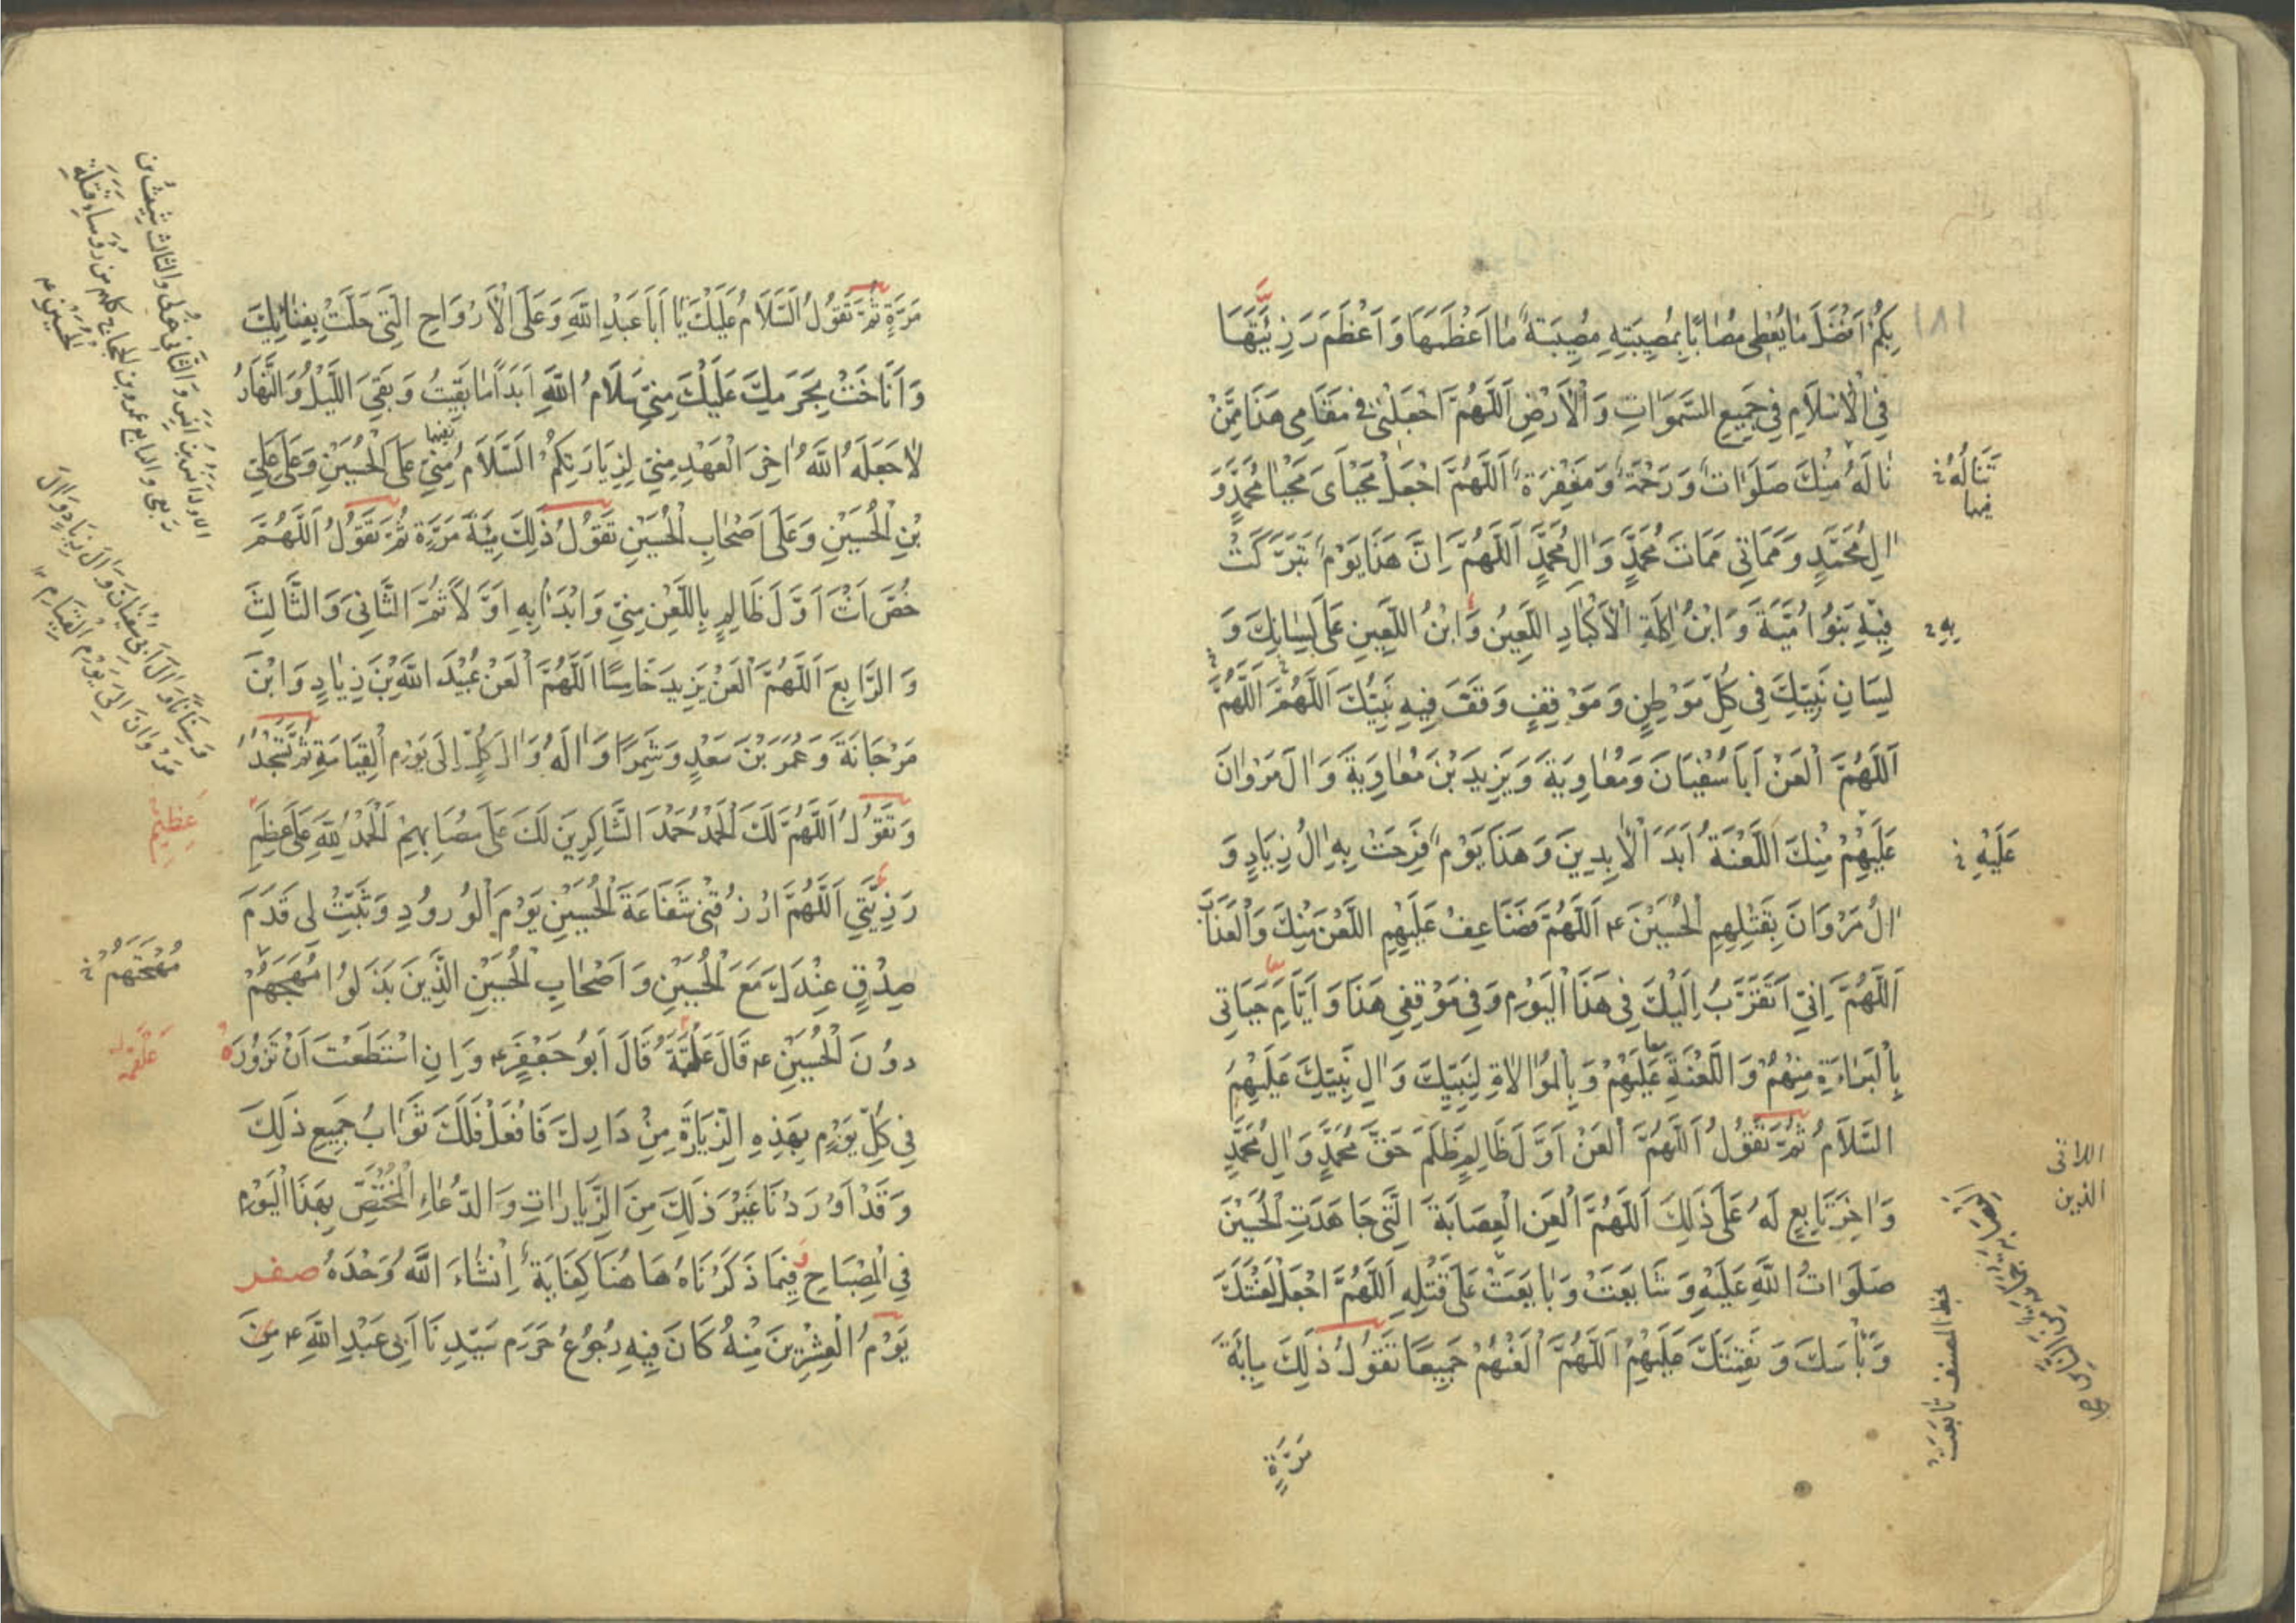 ١٨١
بِكُمْ اَفْضَلَ مَا يُعْطِى مُصَابًا بِمُصِيبَتِهِ مُصِيبَةً مَا اَعْظَمَهَا وَ اَعْظَمَ رَزِيَّتَهَا
فِي الْاِسْلَامِ فِي جَمِيعِ السَّمَوَاتِ وَ الْاَرْضِ اَللّٰهُمَّ اجْعَلْنِي فِي مَقَامِي هَذَا مِمَّنْ
نَالَهُ مِنْكَ صَلَوَاتٌ وَ رَحْمَةٌ وَ مَغْفِرَةٌ اَللّٰهُمَّ اجْعَلْ مَحْيَاىَ مَحْيَا مُحَمَّدٍ وَ
تَنَالُهُ
فيها
الِ مُحَمَّدٍ وَ مَمَاتِي مَمَاتَ مُحَمَّدٍ وَ الِ مُحَمَّدٍ اَللّٰهُمَّ اِنَّ هَذَا يَوْمٌ تَبَرَّكَتْ
فِيهِ بَنُو اُمَيَّةَ وَ ابْنُ اكِلَةِ الْاَكْبَادِ اللَّعِينُ وَ ابْنُ اللَّعِينِ عَلَى لِسَانِكَ وَ
بِهِ
لِسَانِ نَبِيِّكَ فِي كُلِّ مَوْطِنٍ وَ مَوْقِفٍ وَقَفَ فِيهِ نَبِيُّكَ اَللّٰهُمَّ اَللّٰهُمَّ
اَللّٰهُمَّ الْعَنْ اَبَا سُفْيَانَ وَ مُعَاوِيَةَ وَ يَزِيدَ بْنَ مُعَاوِيَةَ وَ الَ مَرْوَانَ
عَلَيْهِمْ مِنْكَ اللَّعْنَةُ اَبَدَ الْاَبِدِينَ وَ هَذَا يَوْمٌ فَرِحَتْ بِهِ الُ زِيَادٍ وَ
عَلَيْهِ
الُ مَرْوَانَ بِقَتْلِهِمِ الْحُسَيْنَ ع اَللّٰهُمَّ فَضَاعِفْ عَلَيْهِمِ اللَّعْنَ مِنْكَ وَ الْعَذَابَ
اَللّٰهُمَّ اِنِّي اَتَقَرَّبُ اِلَيْكَ فِي هَذَا الْيَوْمِ وَ فِي مَوْقِفِي هَذَا وَ اَيَّامِ حَيَاتِي
بِالْبَرَاءَةِ مِنْهُمْ وَ اللَّعْنَةِ عَلَيْهِمْ وَ بِالْمُوَالَاةِ لِنَبِيِّكَ وَ الِ نَبِيِّكَ عَلَيْهِمُ
السَّلَامُ ثُمَّ تَقُولُ اَللّٰهُمَّ الْعَنْ اَوَّلَ ظَالِمٍ ظَلَمَ حَقَّ مُحَمَّدٍ وَ الِ مُحَمَّدٍ
وَ اخِرَ تَابِعٍ لَهُ عَلَى ذَلِكَ اَللّٰهُمَّ الْعَنِ الْعِصَابَةَ الَّتِي جَاهَدَتِ الْحُسَيْنَ
الذين
صَلَوَاتُ اللّٰهِ عَلَيْهِ وَ شَايَعَتْ وَ بَايَعَتْ عَلَى قَتْلِهِ اَللّٰهُمَّ اجْعَلْ لَعْنَتَكَ
بخط المصنف تابعت
وَ بَأْسَكَ وَ نَقِمَتَكَ عَلَيْهِمْ اَللّٰهُمَّ الْعَنْهُمْ جَمِيعًا تَقُولُ ذَلِكَ مِائَةَ
مَرَّةٍ
مَرَّةٍ ثُمَّ تَقُولُ اَلسَّلَامُ عَلَيْكَ يَا اَبَا عَبْدِ اللّٰهِ وَ عَلَى الْاَرْوَاحِ الَّتِي حَلَّتْ بِفِنَائِكَ
وَ اَنَاخَتْ بِحَرَمِكَ عَلَيْكَ مِنِّي سَلَامُ اللّٰهِ اَبَدًا مَا بَقِيتُ وَ بَقِيَ اللَّيْلُ وَ النَّهَارُ
لَا جَعَلَهُ اللّٰهُ اخِرَ الْعَهْدِ مِنِّي لِزِيَارَتِكُمْ اَلسَّلَامُ مِنِّي عَلَى الْحُسَيْنِ وَ عَلَى عَلِيِّ
بْنِ الْحُسَيْنِ وَ عَلَى اَصْحَابِ الْحُسَيْنِ تَقُولُ ذَلِكَ مِئَةَ مَرَّةٍ ثُمَّ تَقُولُ اَللّٰهُمَّ
خُصَّ اَنْتَ اَوَّلَ ظَالِمٍ بِاللَّعْنِ مِنِّي وَ ابْدَأْ بِهِ اَوَّلًا ثُمَّ الثَّانِيَ وَ الثَّالِثَ
وَ الرَّابِعَ اَللّٰهُمَّ الْعَنْ يَزِيدَ خَامِسًا اَللّٰهُمَّ الْعَنْ عُبَيْدَ اللّٰهِ بْنَ زِيَادٍ وَ ابْنَ
مَرْجَانَةَ وَ عُمَرَ بْنَ سَعْدٍ وَ شِمْرًا وَ الَهُ وَ الَ كُلٍّ اِلَى يَوْمِ الْقِيَامَةِ ثُمَّ تَسْجُدُ
وَ تَقُولُ اَللّٰهُمَّ لَكَ الْحَمْدُ حَمْدَ الشَّاكِرِينَ لَكَ عَلَى مُصَابِهِمْ اَلْحَمْدُ لِلّٰهِ عَلَى عِظَمِ
عَظِيمِ
رَزِيَّتِي اَللّٰهُمَّ ارْزُقْنِي شَفَاعَةَ الْحُسَيْنِ يَوْمَ الْوُرُودِ وَ ثَبِّتْ لِي قَدَمَ
صِدْقٍ عِنْدَكَ مَعَ الْحُسَيْنِ وَ اَصْحَابِ الْحُسَيْنِ الَّذِينَ بَذَلُوا مُهَجَهُمْ
مُهْجَتَهُمْ
دُونَ الْحُسَيْنِ ع قَالَ عَلْقَمَةُ قَالَ اَبُو جَعْفَرٍ ع وَ اِنِ اسْتَطَعْتَ اَنْ تَزُورَهُ
عَلْقَمَه
فِي كُلِّ يَوْمٍ بِهَذِهِ الزِّيَارَةِ مِنْ دَارِكَ فَافْعَلْ فَلَكَ ثَوَابُ جَمِيعِ ذَلِكَ
وَ قَدْ اَوْرَدْنَا غَيْرَ ذَلِكَ مِنَ الزِّيَارَاتِ وَ الدُّعَاءِ الْمُخْتَصِّ بِهَذَا الْيَوْمِ
فِي الْمِصْبَاحِ وَ فِيمَا ذَكَرْنَاهُ هَاهُنَا كِفَايَةٌ اِنْشَاءَ اللّٰهُ وَحْدَهُ صفر
يَوْمُ الْعِشْرِينَ مِنْهُ كَانَ فِيهِ رُجُوعُ حَرَمِ سَيِّدِنَا اَبِي عَبْدِ اللّٰهِ ع مِنَ
وَ سِنَانًا وَ الَ اَبِي سُفْيَانَ وَ الَ زِيَادٍ وَ الَ
مَرْوَانَ اِلَى يَوْمِ الْقِيَامِ